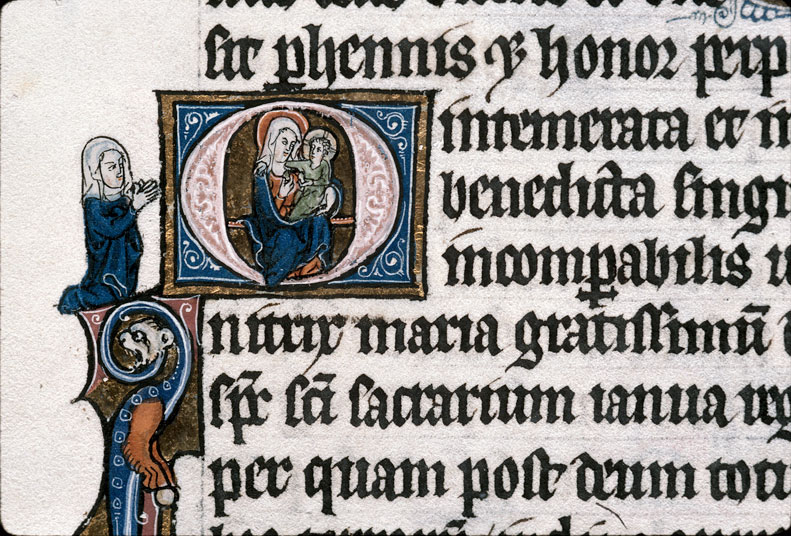 sit phennis ⁊ honor perp
O intemerata et in
benedicta singu
incomꝑabilis
nitrix maria gratissimū
spr̄ sc̄i sacrarium ianua reg
per quam post deum